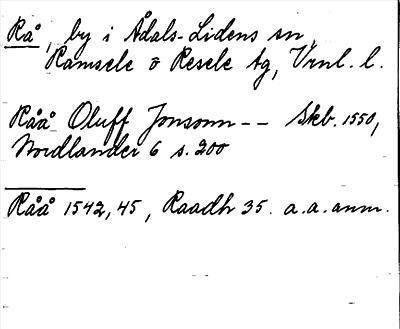 Rå, by i Ådals-Lidens sn,
Ramsele o Resele tg, Vrnl. l.
Råå Oluff Jonsonn -- Skb. 1550,
Nordlander 6 s. 200
Råå 1542, 45, Raadh 35. a.a. anm.